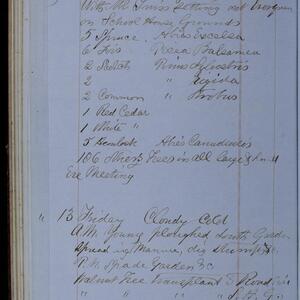 Setting out Evergreen
on School House Grounds
5 Spruce Abies Excelsa
6 Firs Picea Balsamea
2 Scotch Pinus Sylvestris
2 " Rigida
2 Common " Strobus
1 Red Cedar
1 White "
5 Hemlock Abies Canadensis
106 Trees in all large & small
Eve Meeting
" 13 Friday Cloudy Cold
A.M. Young ploughed South Garden
Spread ing Manure, dig Stumps &c.
P.M. Spade Garden &c
Walnut Tree transplant
" " "